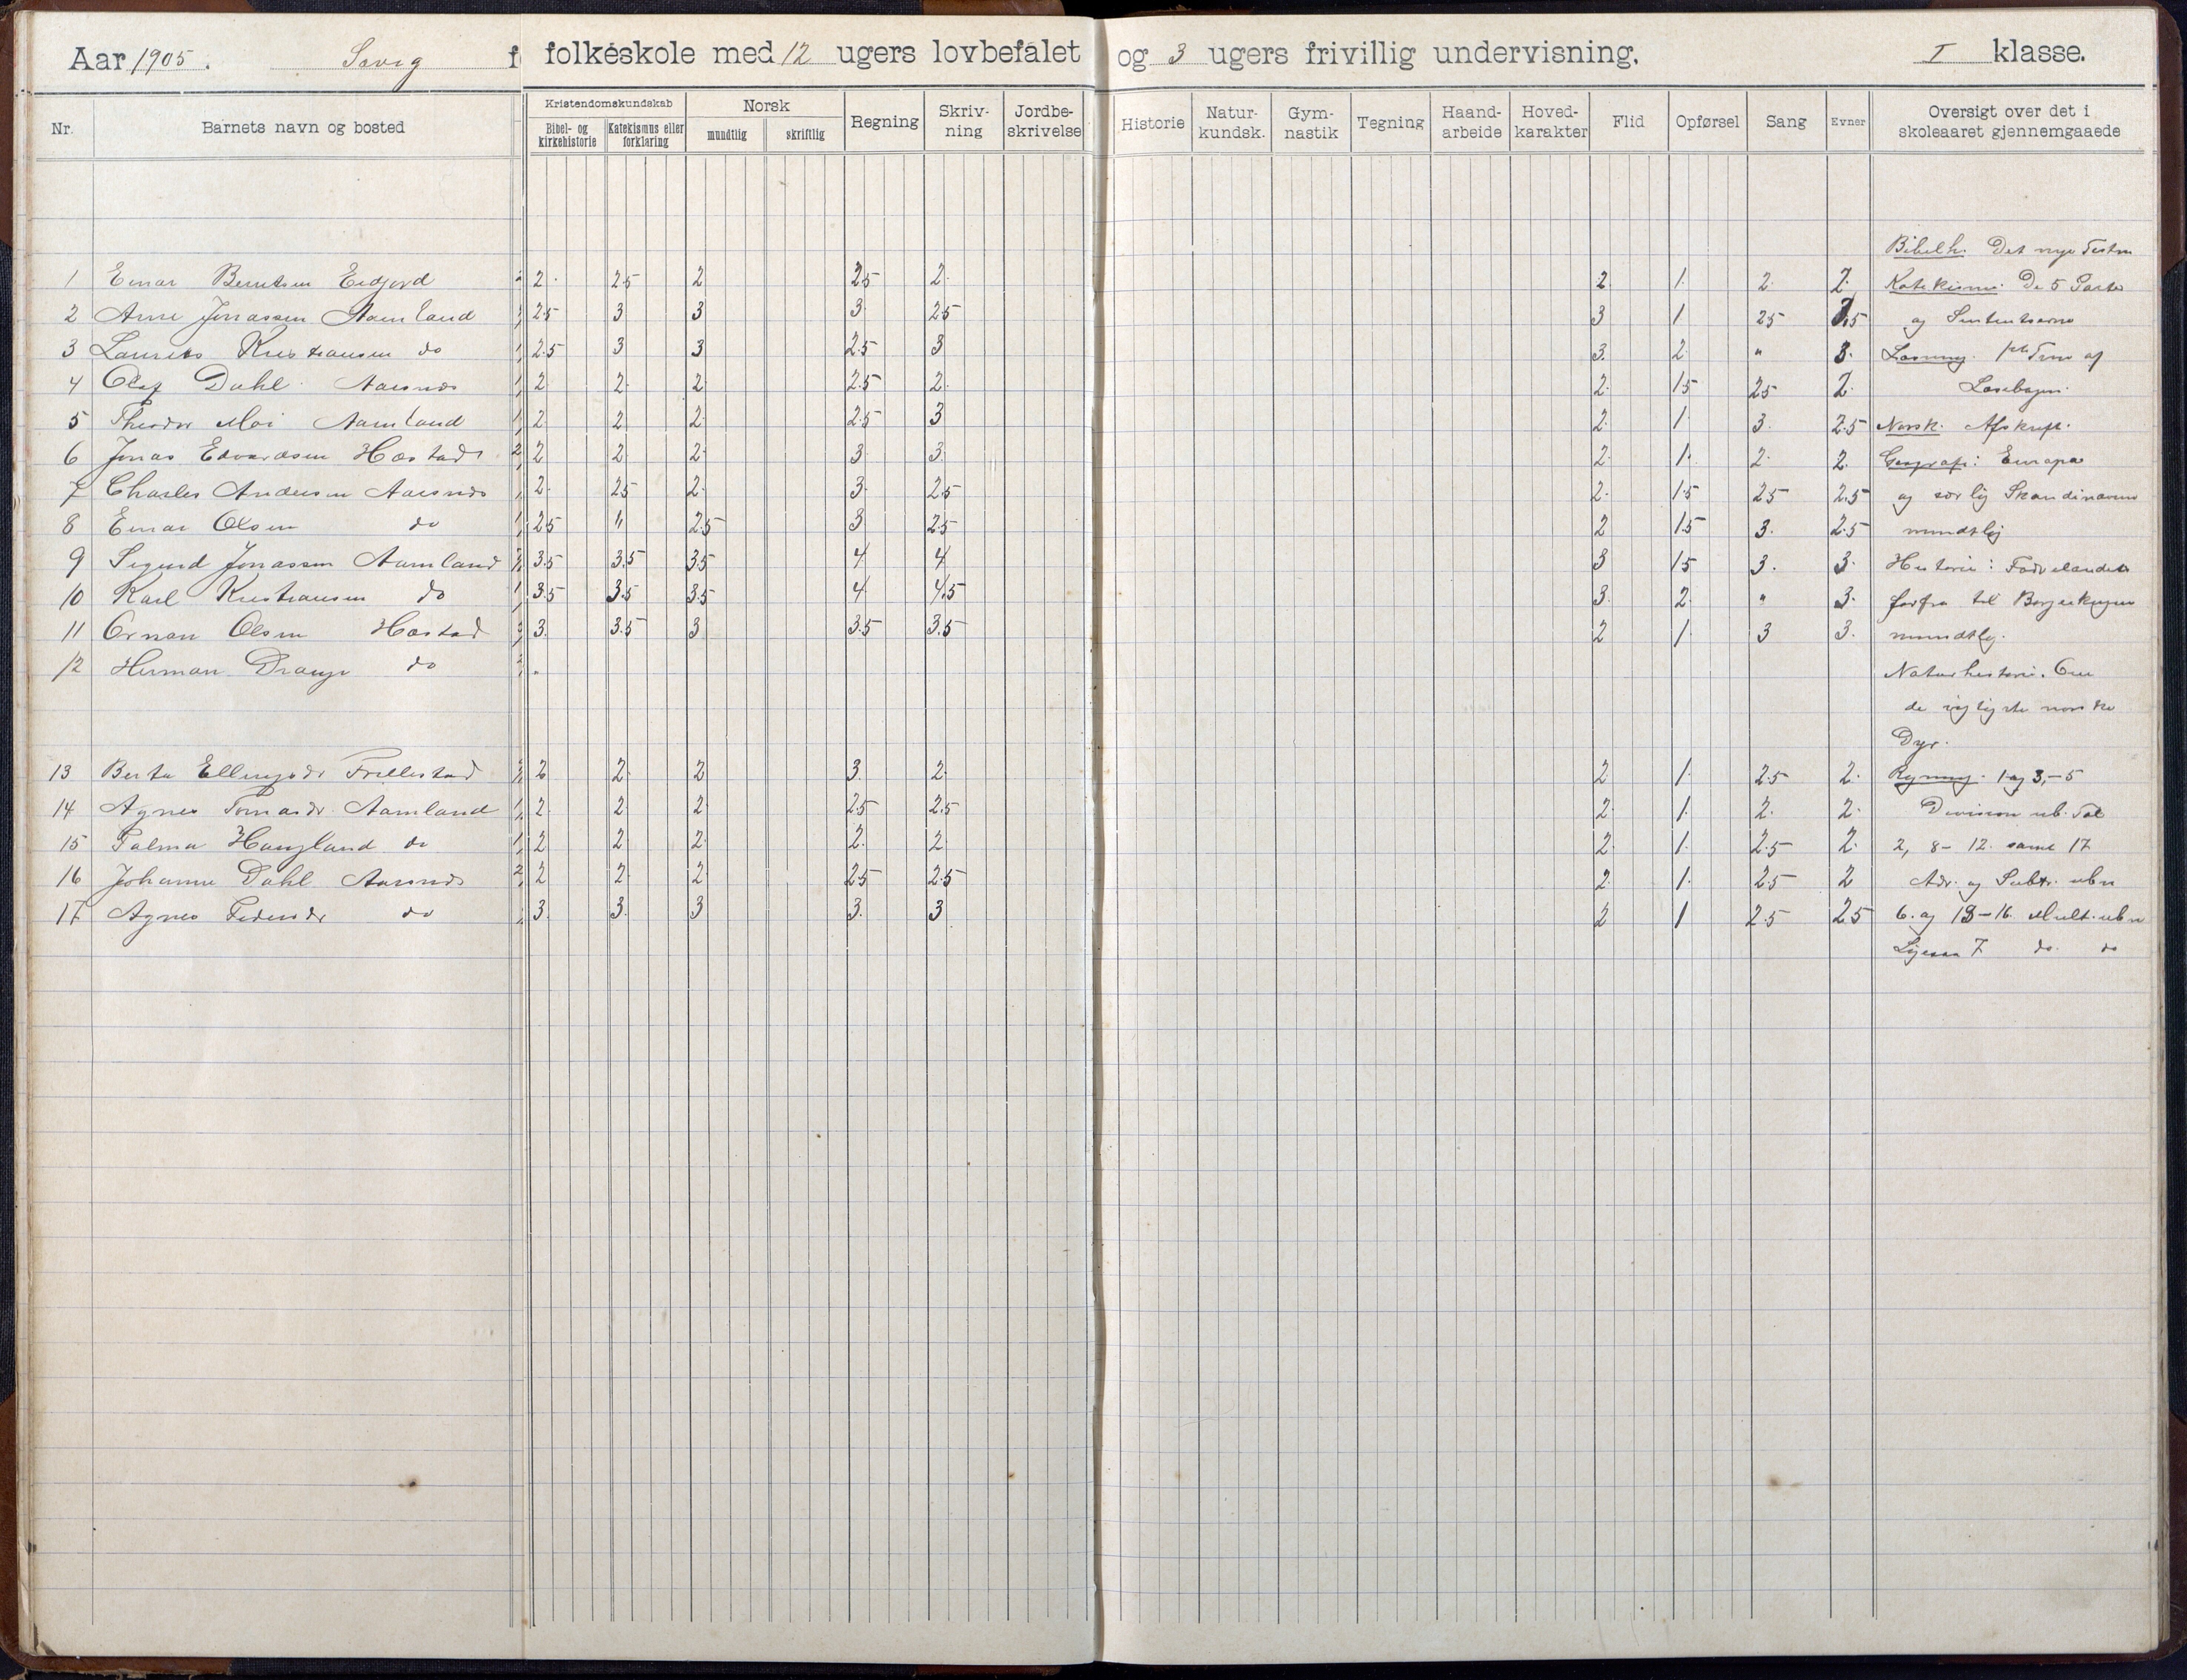 Aar 1905. folkeskole med 12 ugers lovbefalet og 3 ugers frivillig undervisning. I klasse.
Nr. Barnets navn og bosted Kristendomskundskab Bibel- og kirkehistorie Katekismus eller forklaring Norsk mundtlig skriftlig Regning Skriv-ning Jordbe-skrivelse Historie Natur-kundsk. Gym-nastik Tegning Haand-arbeide Hoved-karakter Flid Opførsel Sang Evner Oversigt over det i skoleaaret gjennemgaaede
Bibelh. Det nye Testm
1 Einar Berntsen Eidjord 2. 2.5 2 2.5 2. 2. 1. 2. 2. Katekisme. De 5 Parter
2 Arne Jonassen Aamland 2.5 3 3 3. 2.5 3 1 2.5 og
3 Laurits Kristiansen do 2.5 3 3 2.5 3 3. 2. " 3. Læsning. af
4 Olaf Dahl Aarsnes 2 2. 2 2.5 2. 2. 1.5 2.5 2. Læsebogen.
5 Theodor Moi Aamland 2. 2. 2. 2.5 3 2. 1. 3. 2.5 Norsk. Afskrift.
6 Jonas Edvardsen Hæstad 2 2. 2. 3 3. 2. 1. 2. 2. Geografi: Europa
7 Charles Andersen Aarsnes 2. 2.5 2. 3. 2.5 2. 1.5 2.5 2.5 og særlig Skandinavien
8 Einar Olsen do 2.5 " 2.5 3 2.5 2 1.5 3. 2.5 mundtlig
9 Sigurd Jonassen Aamland 3.5 3.5 3.5 4. 4 3 1.5 3. 3. Historie: Fædrelandets
10 Karl Kristiansen do 3.5 3.5 3.5 4. 4.5 3. 2. " 3. forfra til Borgerkrigen
11 Ornan Olsen Hæstad 3. 3.5 3 3.5 3.5 2 1. 3 3. mundtlig.
12 Herman Drange do Naturhistorie. Om
de vigtigste norske
Dyr.
13 Berta Ellingsdr Frillestad 2 2. 2 3. 2. 2 1. 2.5 2. Regning. 1 og 3,-5
14 Agnes Tomasdr. Aamland 2. 2 2. 2.5 2.5 2. 1. 2. 2. Division ub. Tal
15 Palma Haugland do 2 2 2. 2. 2. 2. 1. 2.5 2. 2, 8- 12. samt 17
16 Johanne Dahl Aarsnes 2 2. 2. 2.5 2.5 2. 1. 2.5 2 Adr. og Subtr. ubn
17 Agnes Pedersdr do 3. 3. 3 3. 3 2 1 2.5 2.5 6. og 13-16. Mult. ubn
Ligesaa 7 do. do